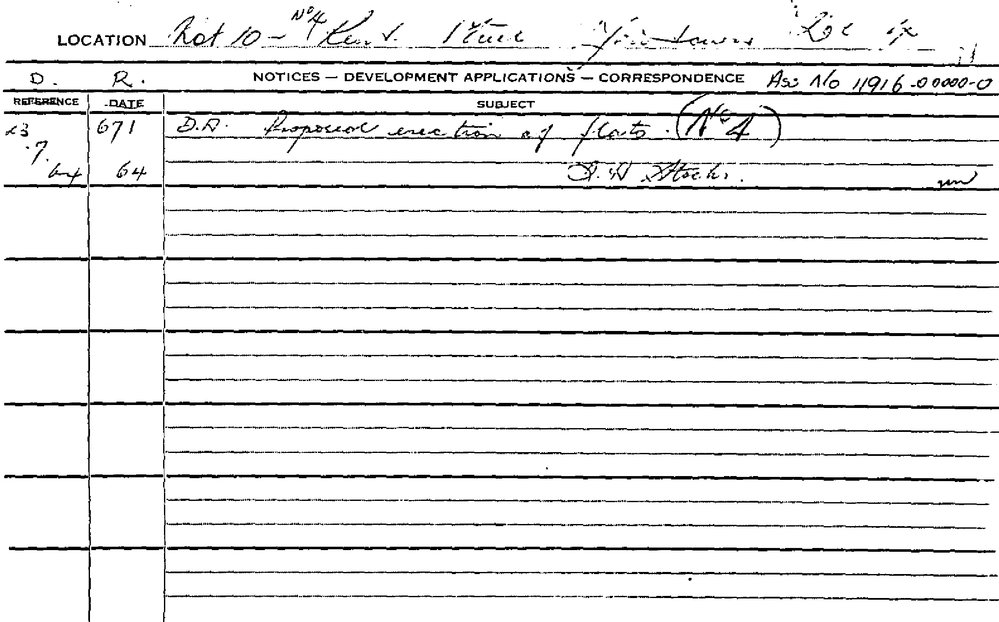 LOCATION Lot 10 - No 4 Kent Street
D. R. NOTICES — DEVELOPMENT APPLICATIONS — CORRESPONDENCE Ass No 11916.00000-0
REFERENCE DATE SUBJECT
23 671 D.A. Proposed erection of flats. (No 4)
.7.
64 64 Stocks.